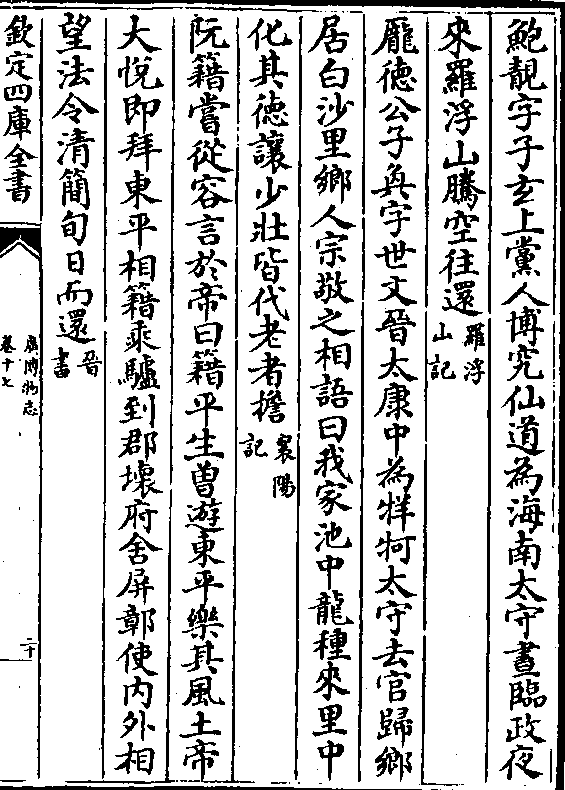 鮑靚字子玄上黨人博究仙道為海南太守晝臨政夜
來羅浮山騰空往還羅浮山記
龎徳公子奐字世文晉太康中為牂牁太守去官歸鄉
居白沙里鄉人宗敬之相語曰我家池中龍種來里中
化其徳讓少壯皆代老者擔襄陽記
阮籍嘗從容言於帝曰籍平生曽遊東平樂其風土帝
大悅即拜東平相籍乘驢到郡壊府舍屏鄣使内外相
望法令清簡旬日而還晉書
欽定四庫全書
廣博物志
卷十七
二十